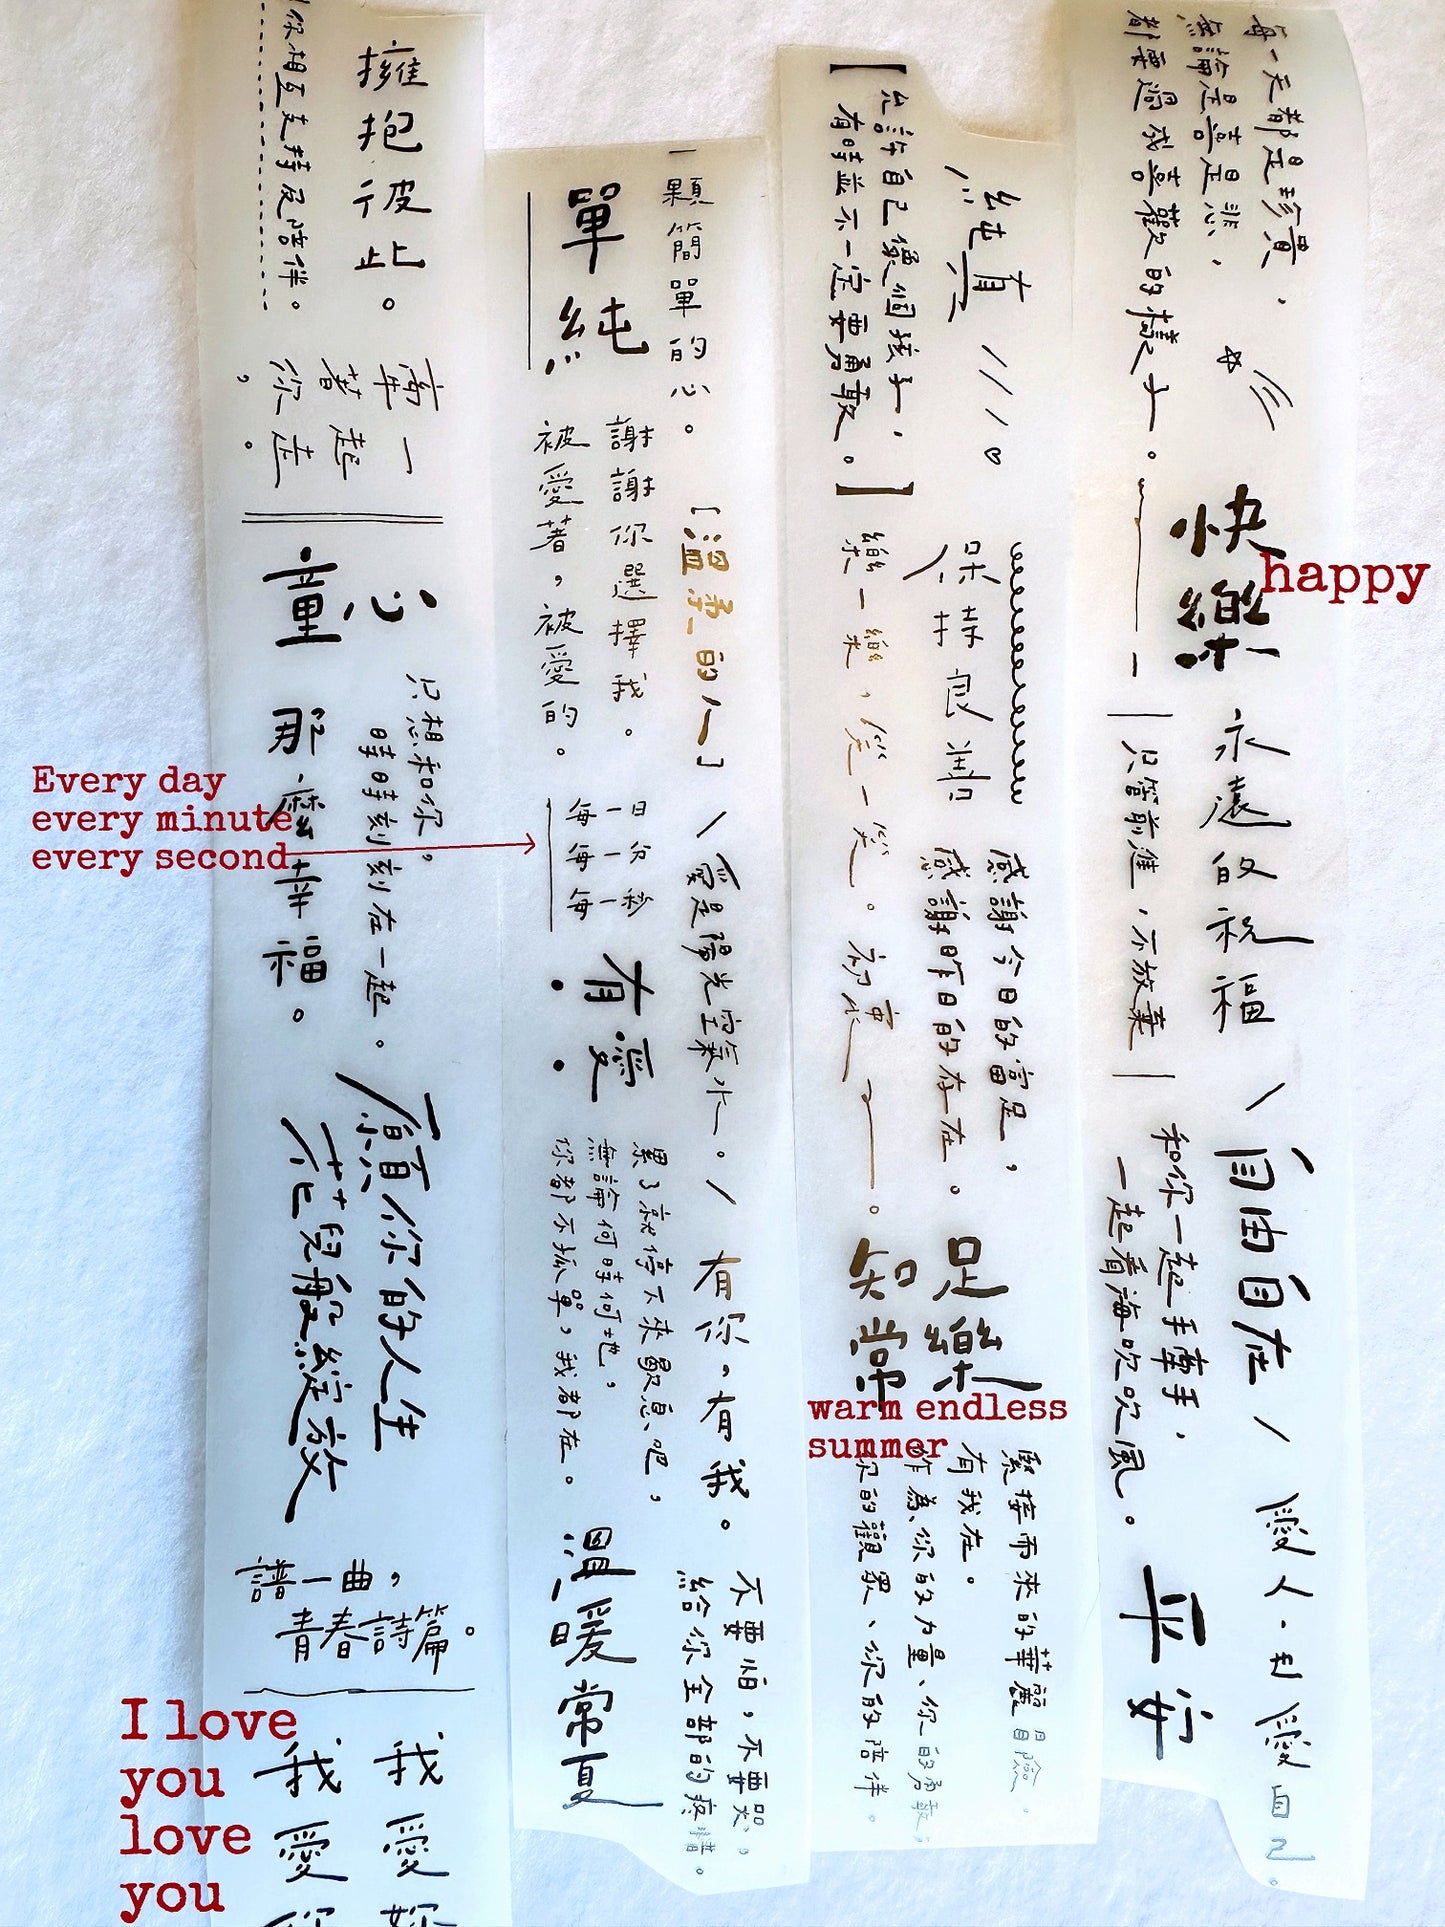 每一天都是珍貴，
無論是喜是悲，
都要過成喜歡的樣子。
快樂
happy
永遠的祝福
只管前進，不放棄
自由自在
和你一起手牽手，
一起看海吹吹風。
平安
愛人·also愛自己。
純真
【允許自己像個孩子，
有時並不一定要勇敢。】
樂一樂，笑一笑。初衷。
感謝今日的富足，
感謝昨日的存在。
知足
常樂
緊接而來的華麗冒險。
有我在。
作為、你的力量、你的勇敢，
你的觀眾、你的陪伴。
一顆簡單的心。
單純
謝謝你選擇我。
被愛著，被愛的。
[溫柔的人]
每一日
每一分
每一秒
Every day
every minute
every second
愛是陽光空氣水。
有愛
有你。有我。
累了就停下來歇息吧，
無論何時何地，
你都不孤單，我都在。
溫暖常夏
warm endless
summer
不要怕，不要哭，
給你全部的疼惜。
擁抱彼此。
你相互支持及陪伴。
牽著你，
一起走。
童心
只想和你，
時時刻刻在一起。
那麼幸福。
願你的人生
花兒般綻放
譜一曲，
青春詩篇。
我愛你
我愛妳
I love
you
love
you